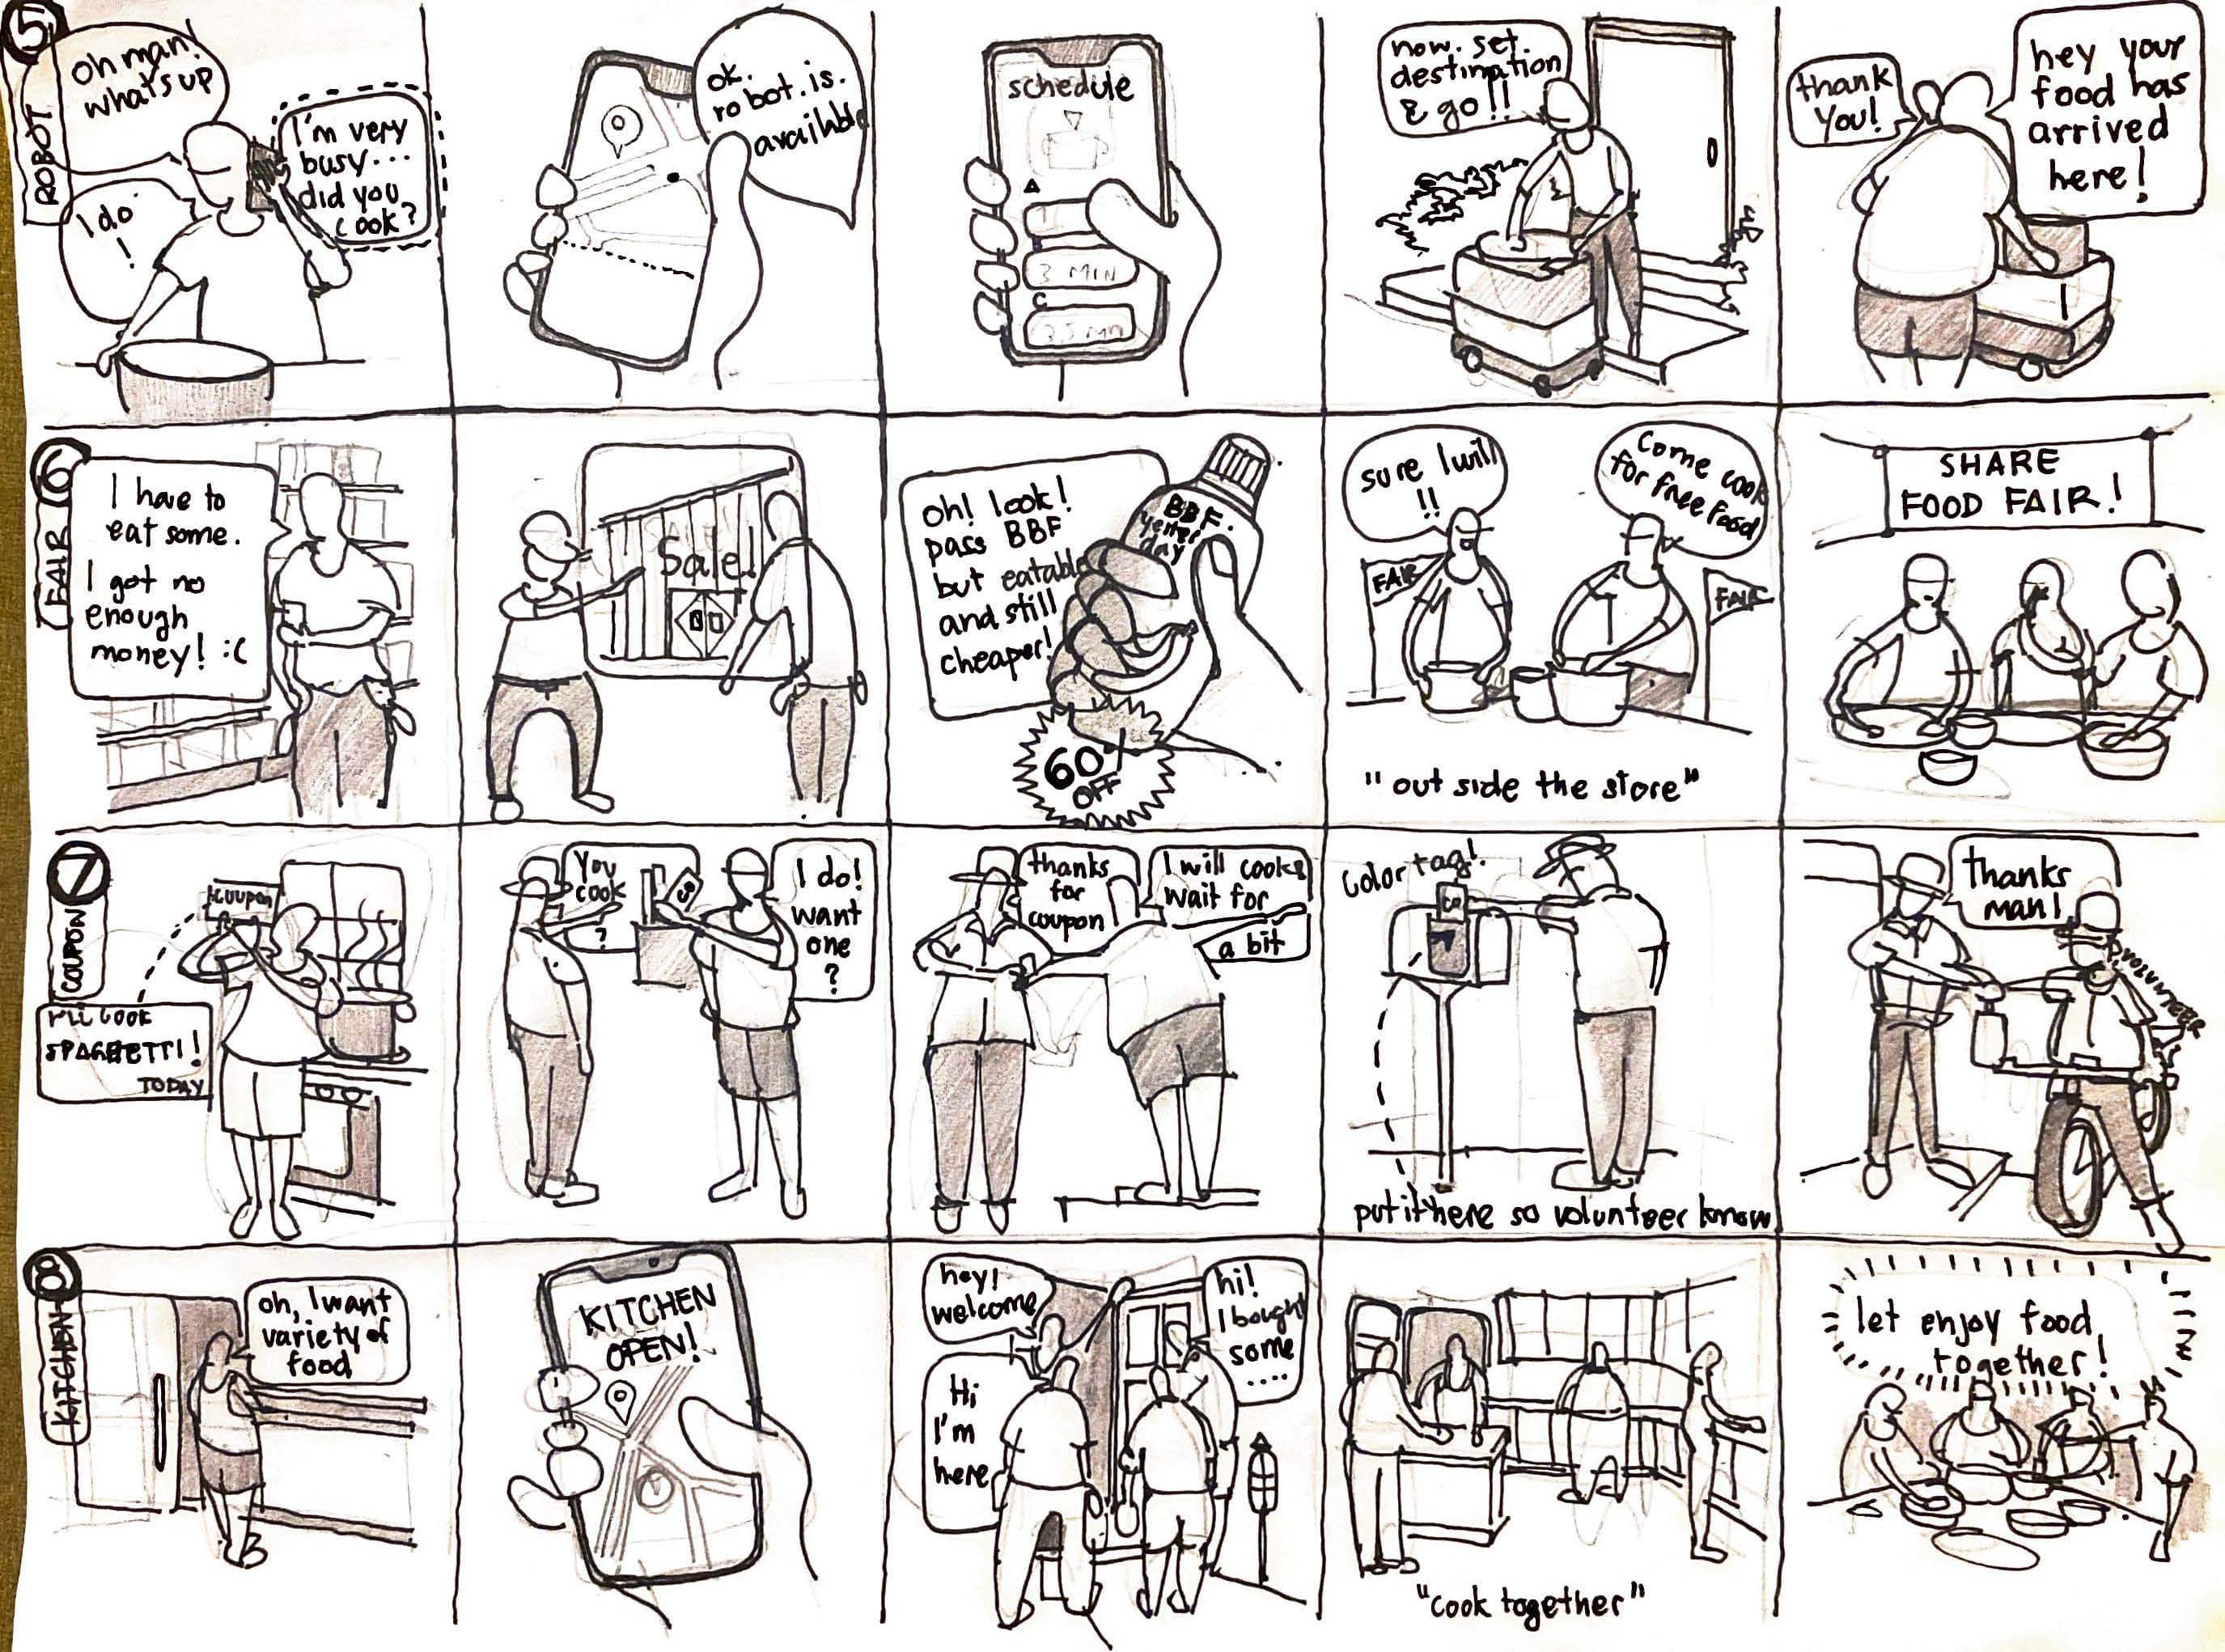 5
ROBOT
oh man!
whats up
I'm very
busy...
did you
cook?
I do
!
ok.
robot.is.
available
schedule
A
3 MIN
C
now. set.
destination
& go!!
thank
you!
hey your
food has
arrived
here!
6
FAIR
I have to
eat some.
I got no
enough
money! :(
Sale!
oh! look!
pass BBF
but eatable
and still
cheaper!
BBF.
yester
day
60%
OFF
sure I will
!!
Come cook
for free food
FAIR
FAIR
"out side the store"
SHARE
FOOD FAIR!
7
COUPON
coupon
I'LL COOK
SPAGHETTI!
TODAY
You
cook
?
CO
I do!
want
one
?
thanks
for
coupon
I will cook &
wait for
a bit
Color tag!
CO
put it here so volunteer know
Thanks
man!
VOLUNTEER
8
KITCHEN
oh, I want
variety of
food
KITCHEN
OPEN!
hey!
welcome
Hi
I'm
here
hi!
I bought
some
....
"cook together"
let enjoy food
together!